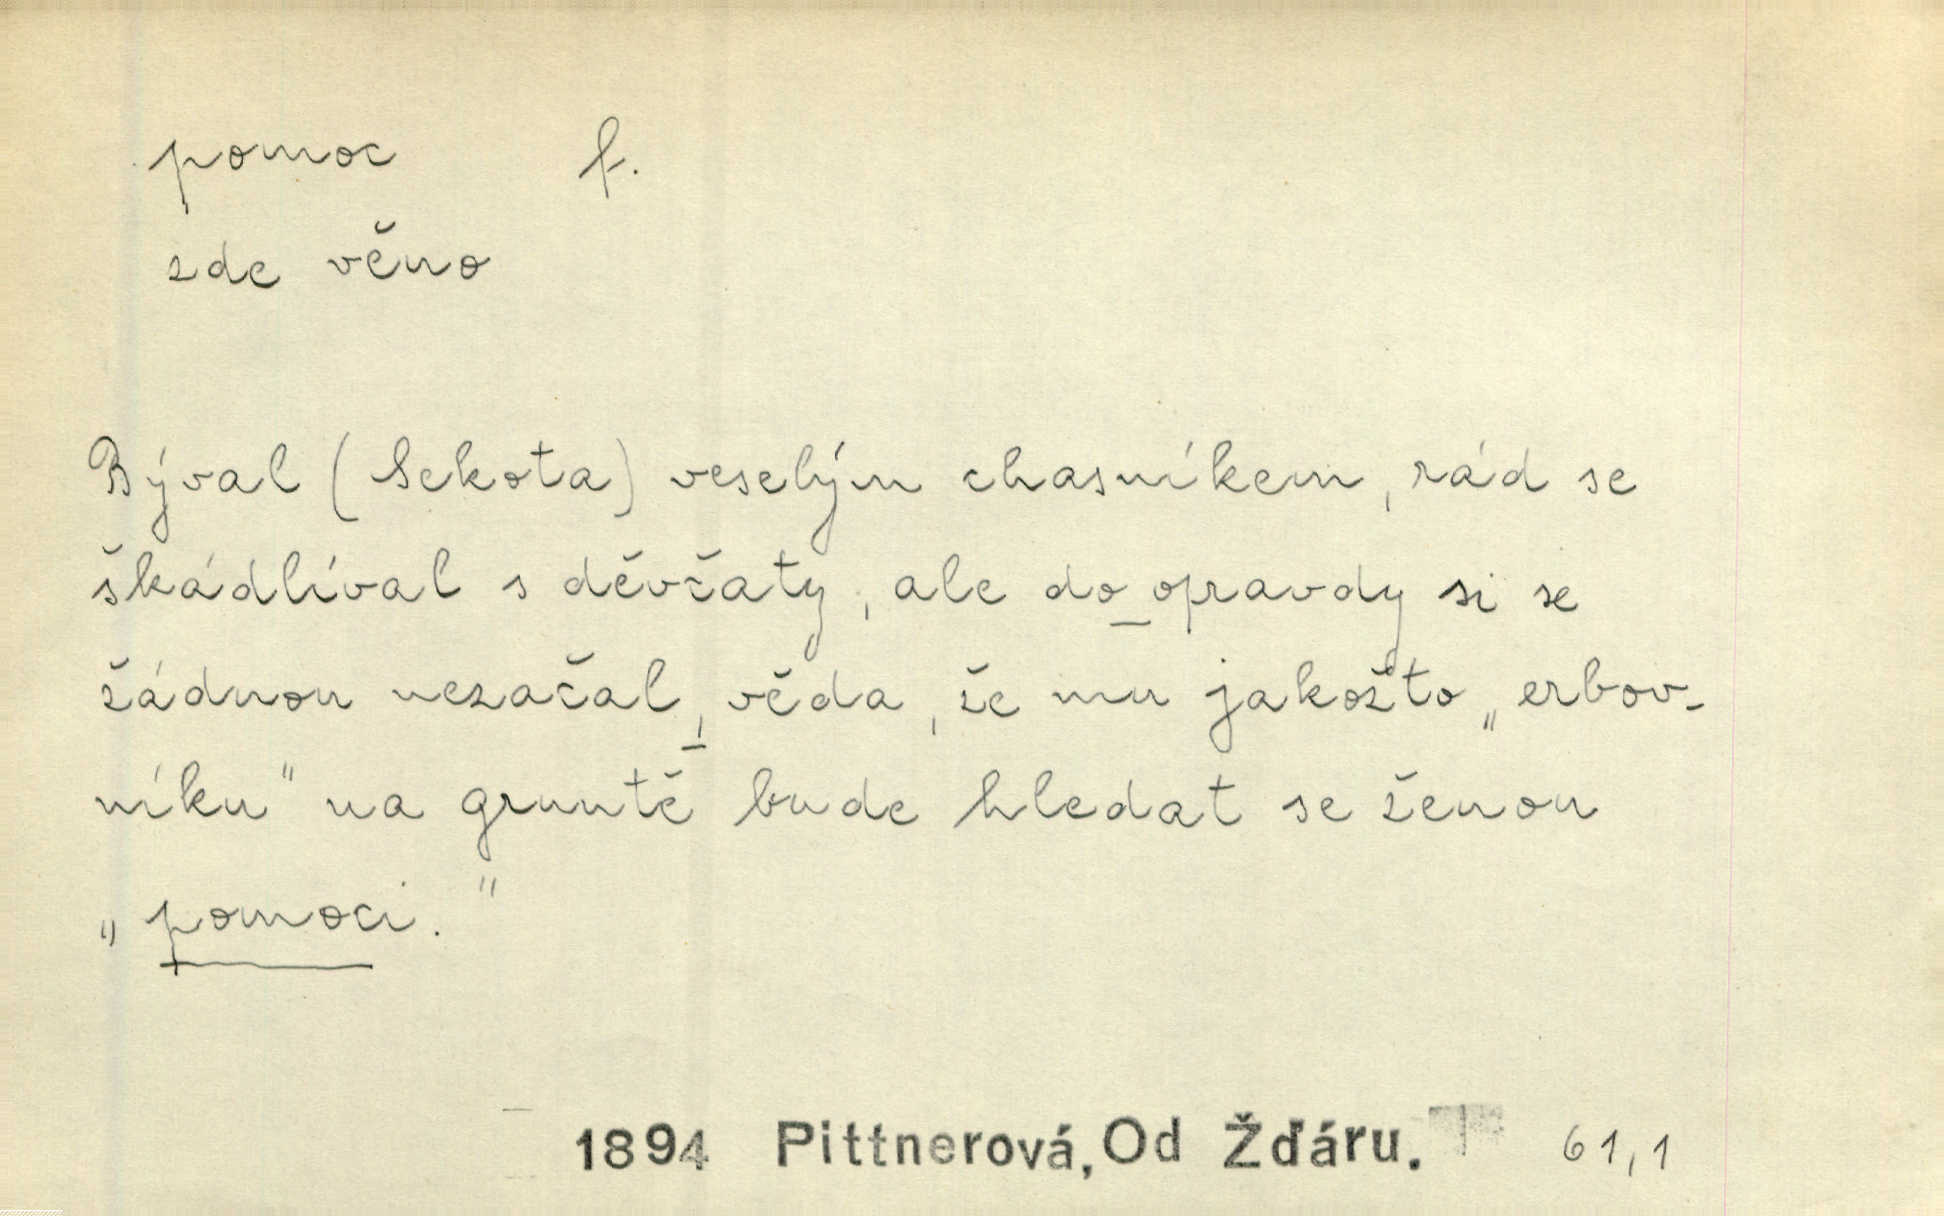 pomoc f.
zde věno
Býval (Sekota) veselým chasníkem, rád se
škádlíval s děvčaty, ale do opravdy si se
žádnou nezačal, věda, že mu jakožto „erbov-
níku" na gruntě bude hledat se ženou
„pomoci."
1894 Pittnerová, Od Žďáru. 61,1